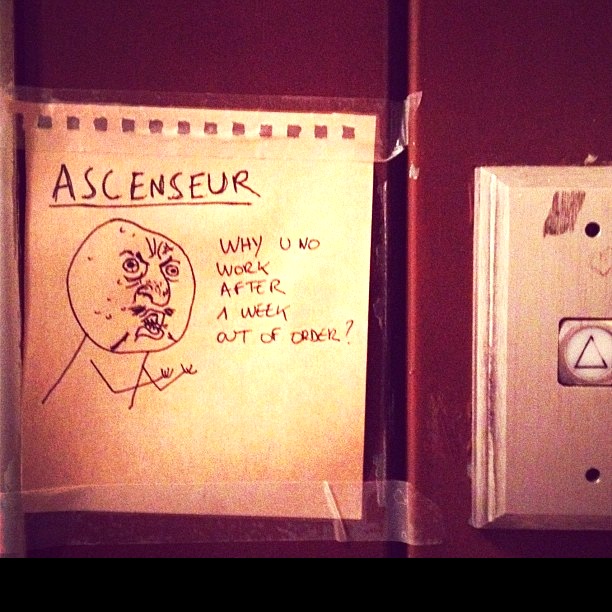 ASCENSEUR
WHY U NO
WORK
AFTER
1 WEEK
OUT OF ORDER?